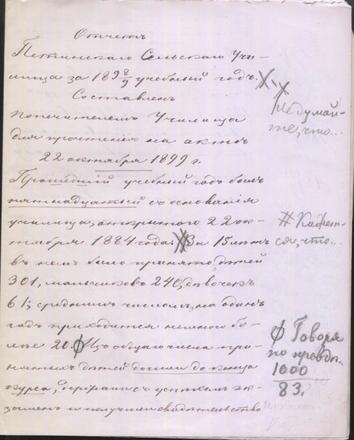 Отчетъ
Петинскаго Сельскаго Учи-
лища за 1898/9 учебный годъ.
Составленъ
попечителемъ Училища
для прочтенія на актѣ
22 октября 1899 г.
Прошедшій учебный годъ былъ
пятнадцатый съ основанія
училища, открытаго 22 ок-
тября 1884 года. За 15 лѣтъ
въ немъ было принято дѣтей
301, мальчиковъ 240, дѣвочекъ
61; среднимъ числомъ на одинъ
годъ приходится немного бо-
лѣе 20. Изъ общаго числа при-
нятыхъ дѣтей дошли до конца
курса, выдержали съ успѣхомъ эк-
заменъ и получили свидѣтельство
Не думай-
те, что...
# Кажет-
ся, что...
ф Говоря
по правдѣ
1000
83.